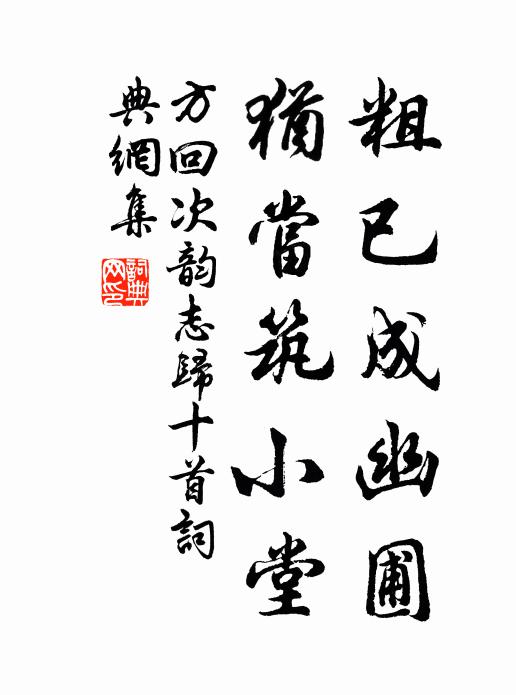 粗已成幽圃
猶當筑小堂
方回次韵志歸十首詞
典網集
詞典网印